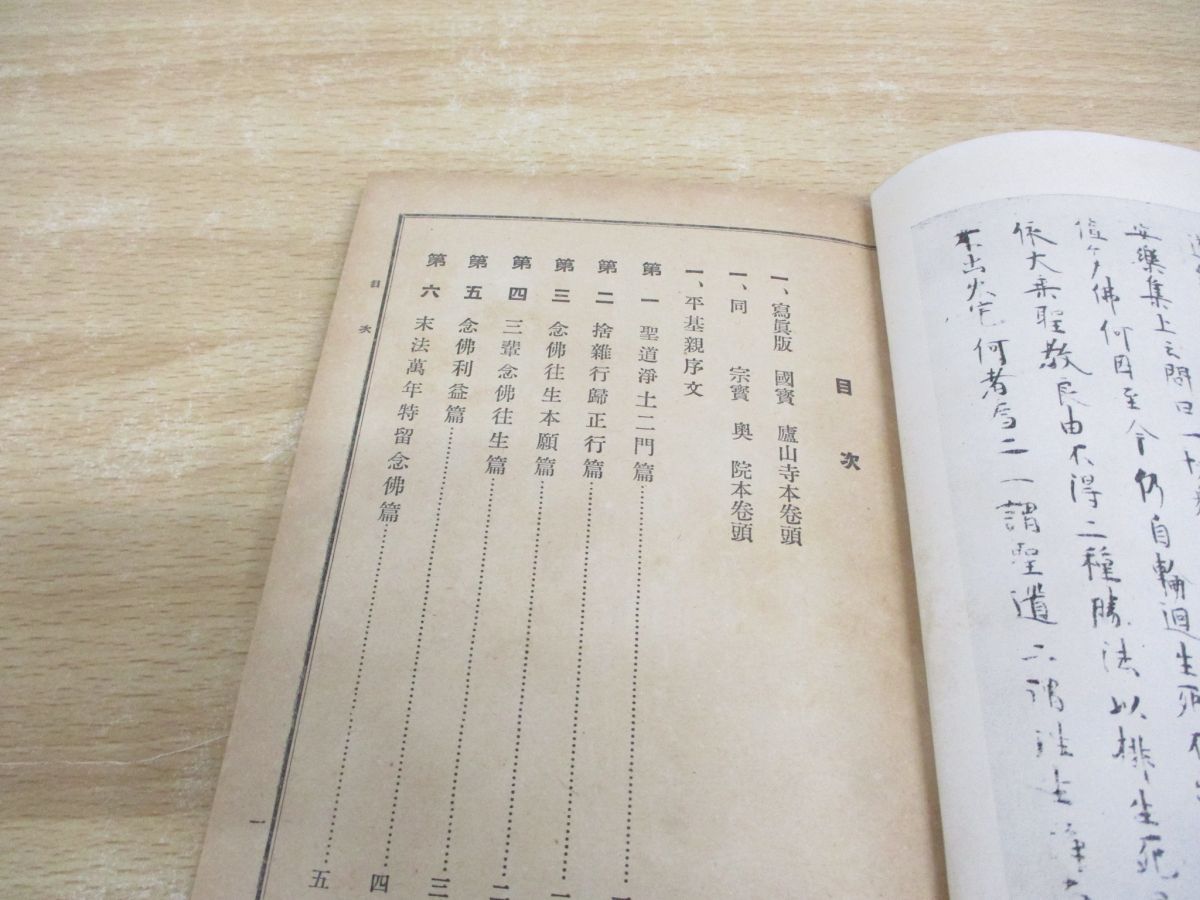 安樂集上云問曰一
佛何因至今仍自輪迴生死
依大乘聖教良由不得二種勝法以排生死
不出火宅何者爲二一謂聖道二謂往生淨
目次
一、寫眞版 國寶 廬山寺本卷頭
一、同 宗寶 奥院本卷頭
一、平基親序文
第一 聖道淨土二門篇
第二 捨雜行歸正行篇
第三 念佛往生本願篇
第四 三輩念佛往生篇
第五 念佛利益篇
第六 末法萬年特留念佛篇
三
四
五
目次
一